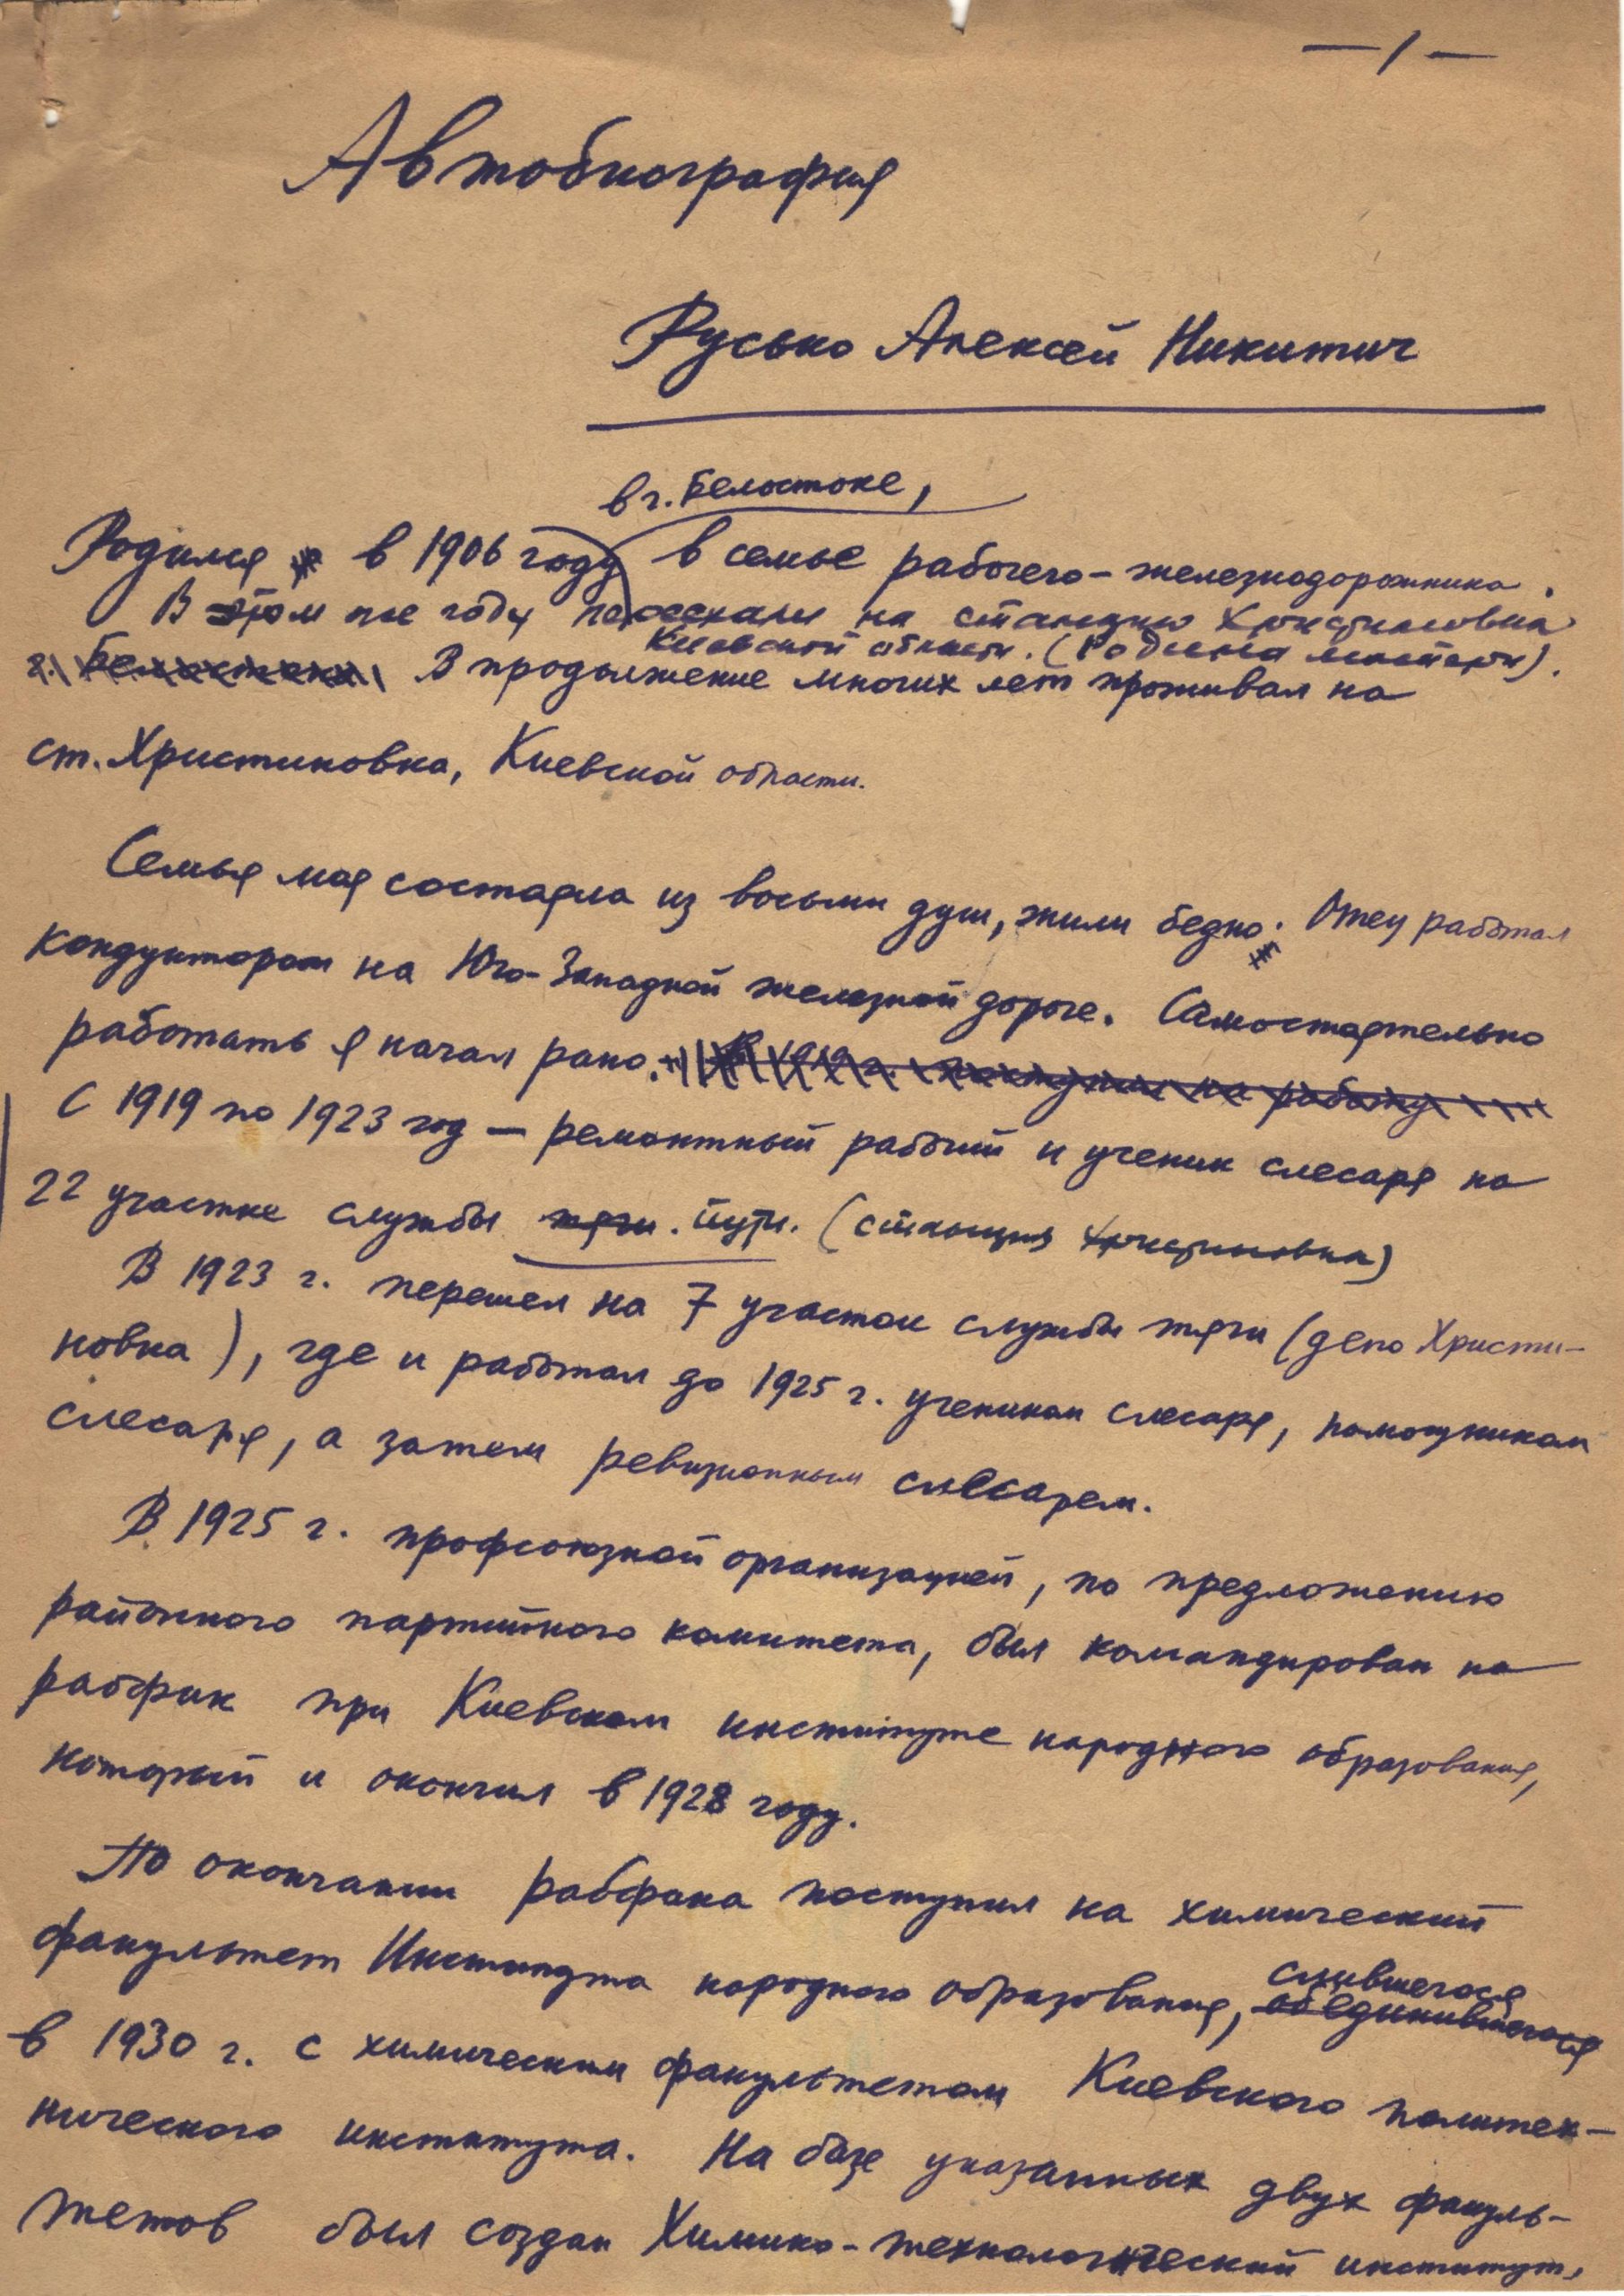 — 1 —
Автобиография
Русько Алексей Никитич
в г. Белостоке,
Родился в 1906 году в семье рабочего-железнодорожника.
В этом же году переехали на станцию Христиновка
Киевской области. (Родина матери).
г. Белостоке В продолжение многих лет проживал на
ст. Христиновка, Киевской области.
Семья моя состояла из восьми душ, жили бедно. Отец работал
кондуктором на Юго-Западной железной дороге. Самостоятельно
работать я начал рано. В 1919 г. поступил на работу
С 1919 по 1923 год — ремонтный рабочий и ученик слесаря на
22 участке службы тяги. пути. (станция Христиновка)
В 1923 г. перешел на 7 участок службы тяги (депо Христи-
новка), где и работал до 1925 г. учеником слесаря, помощником
слесаря, а затем ревизионным слесарем.
В 1925 г. профсоюзной организацией, по предложению
районного партийного комитета, был командирован на
рабфак при Киевском институте народного образования,
который и окончил в 1928 году.
По окончании рабфака поступил на химический
факультет Института народного образования, объединившегося
слившегося
в 1930 г. с химическим факультетом Киевского политех-
нического института. На базе указанных двух факуль-
тетов был создан Химико-технологический институт,